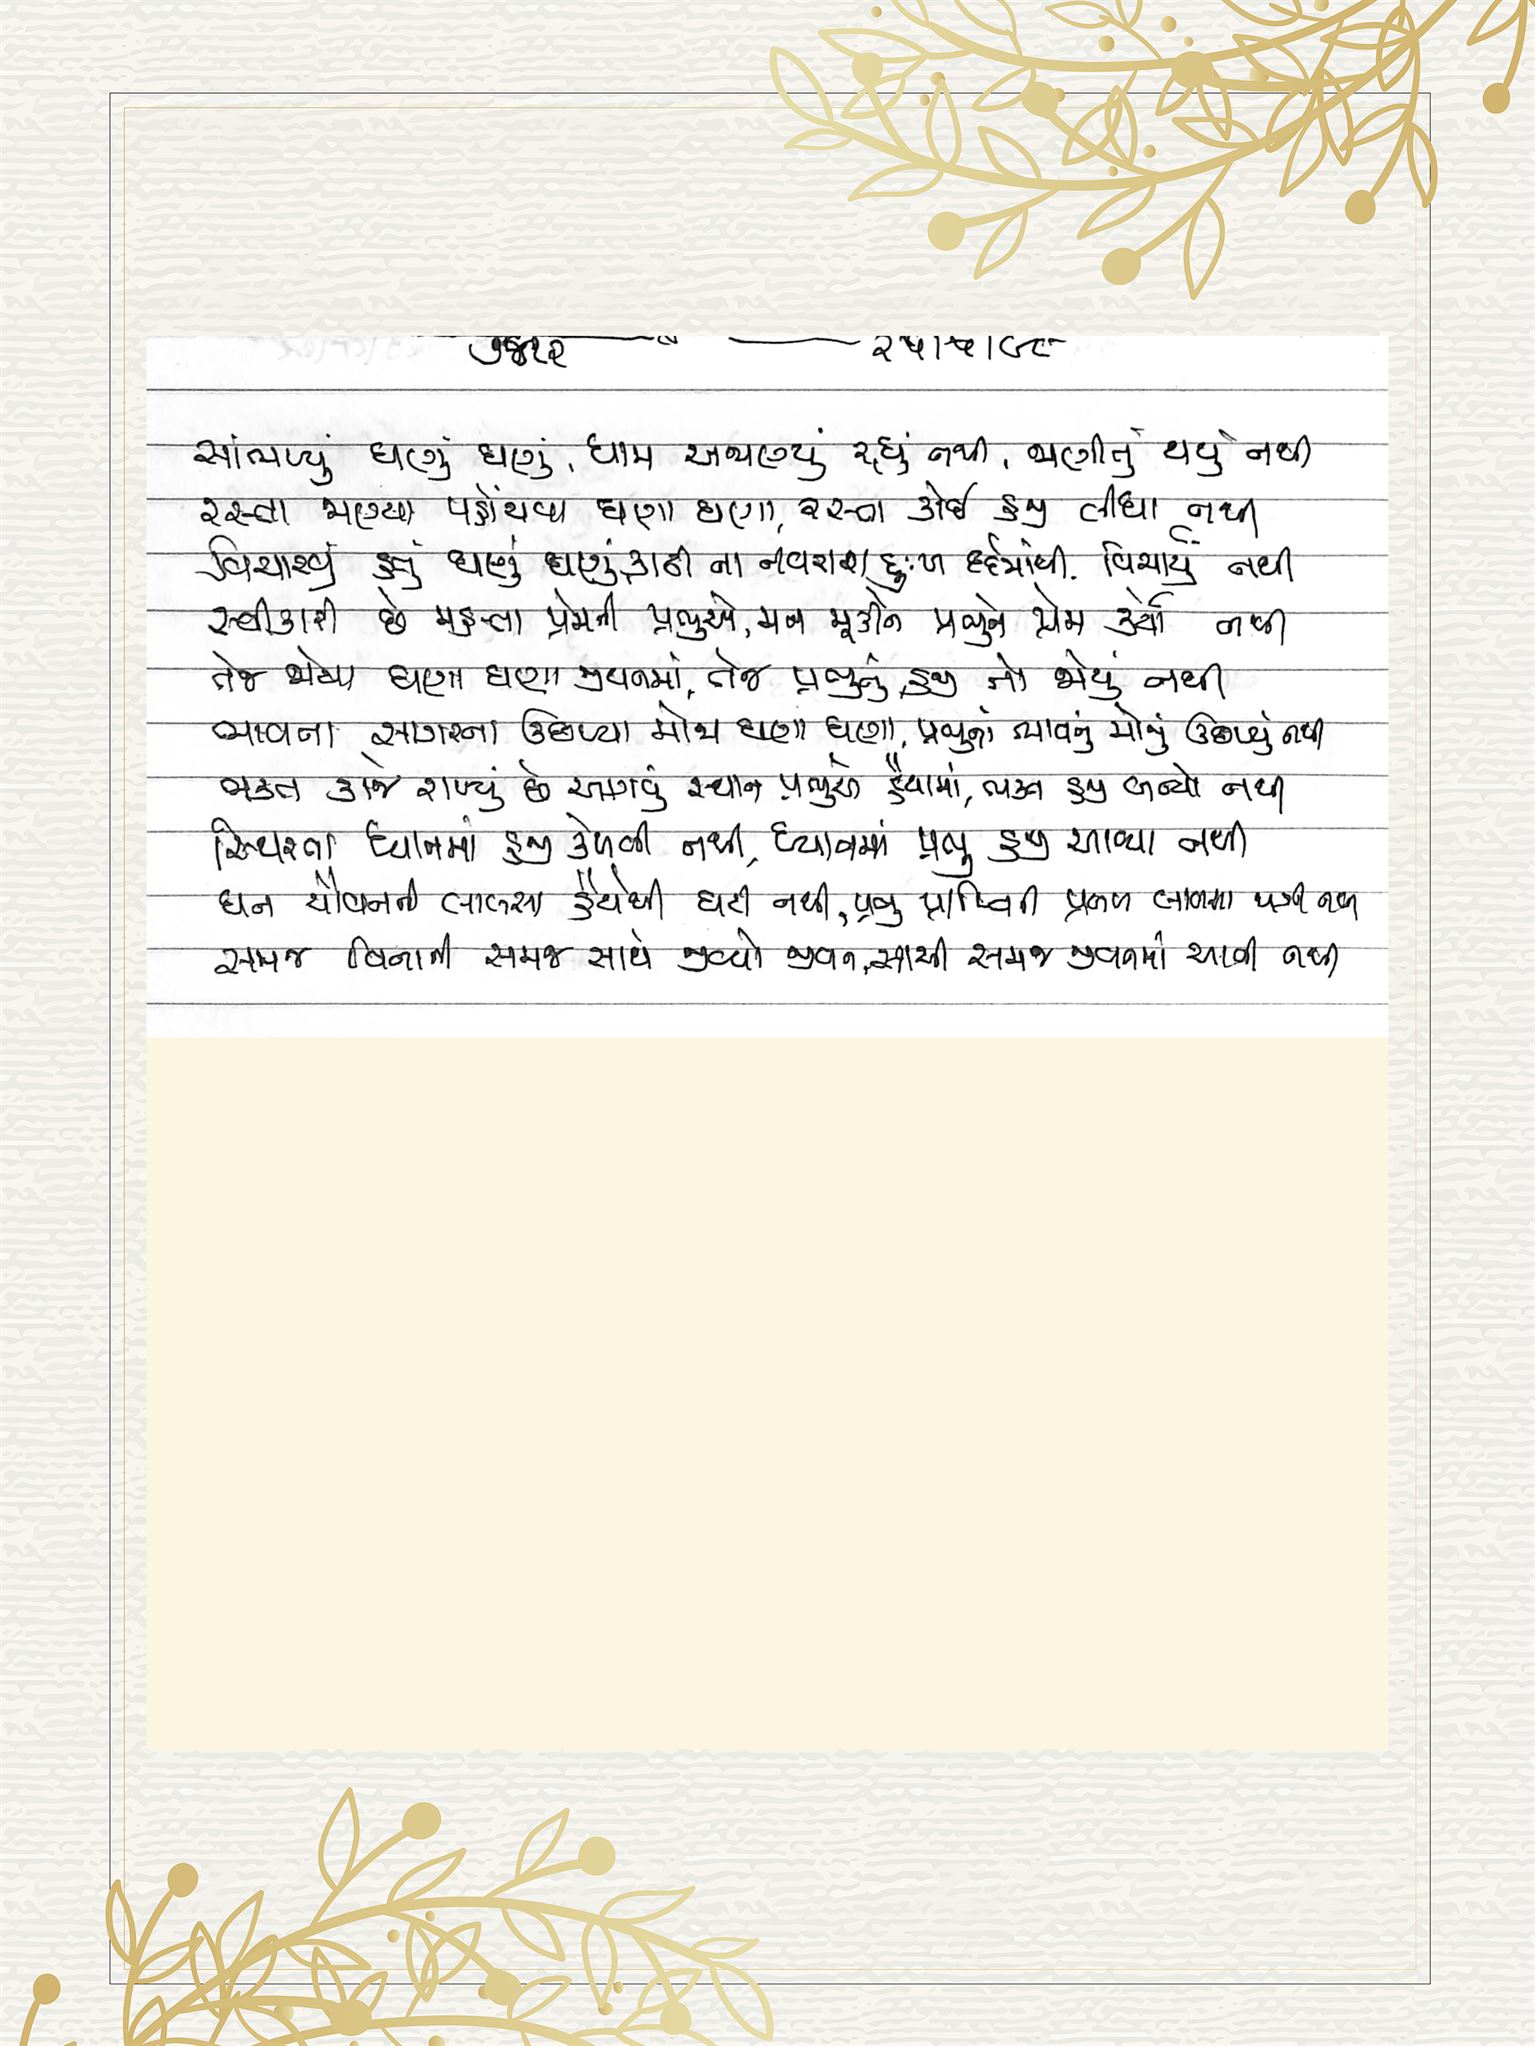 સાંભળ્યું ઘણું ઘણું, ધામ અજાણ્યું રહ્યું નથી, જાણીતું થયું નથી
રસ્તા જાણ્યા પહોંચવા ઘણા ઘણા, રસ્તા કોઈ હજી લીધા નથી
વિચારવું હતું ઘણું ઘણું, કાઢી ના નવરાશ દુઃખ દર્દમાંથી વિચાર્યું નથી
સ્વીકારી છે મહત્તા પ્રેમની પ્રભુએ, મન મૂકીને પ્રભુને પ્રેમ કર્યો નથી
તેજ જોયા ઘણા ઘણા જીવનમાં, તેજ પ્રભુનું હજી તો જોયું નથી
ભાવના સાગરના ઉછળ્યા મોજા ઘણા ઘણા, પ્રભુના ભાવનું મોજું ઉછળ્યું નથી
ભક્ત કાજે રાખ્યું છે આગવું સ્થાન પ્રભુએ હૈયામાં, ભક્ત હજી બન્યો નથી
સ્થિરતા ધ્યાનમાં હજી કેળવી નથી, ધ્યાનમાં પ્રભુ હજી આવ્યા નથી
ધન યૌવનની લાલસા હૈયેથી હટી નથી, પ્રભુ પ્રાપ્તિની પ્રબળ લાલસા જાગી નથી
સમજ વિનાની સમજ સાથે જીવ્યો જીવન, સાચી સમજ જીવનમાં આવી નથી